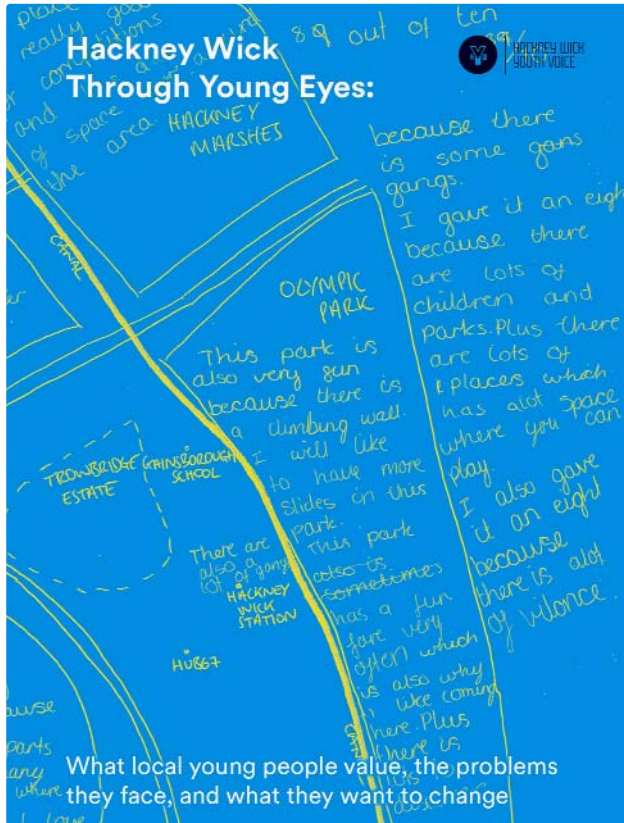 Hackney Wick
Through Young Eyes:
HACKNEY WICK
YOUTH VOICE
place
really good
conditions
and
of space
the area
8 out of ten
HACKNEY
MARSHES
CANAL
because there
is some gans
gangs.
I gave it an eigh
because there
are lots of
children and
parks. Plus there
are lots of
places which
has alot space
where you can
play.
I also gave
it an eight
because
there is alot
of vilonce.
OLYMPIC
PARK
This park is
also very fun
because there is
a climbing wall.
I will like
to have more
slides in this
park.
This park
also is
sometimes
has a fun
fare very
often which
is also why
I like coming
here. Plus
there is
TROWBRIDGE
ESTATE
GAINSBOROUGH
SCHOOL
There are
also a
lot of gangs
HACKNEY
WICK
STATION
HU867
ause
parts
any
where
I love
What local young people value, the problems
they face, and what they want to change